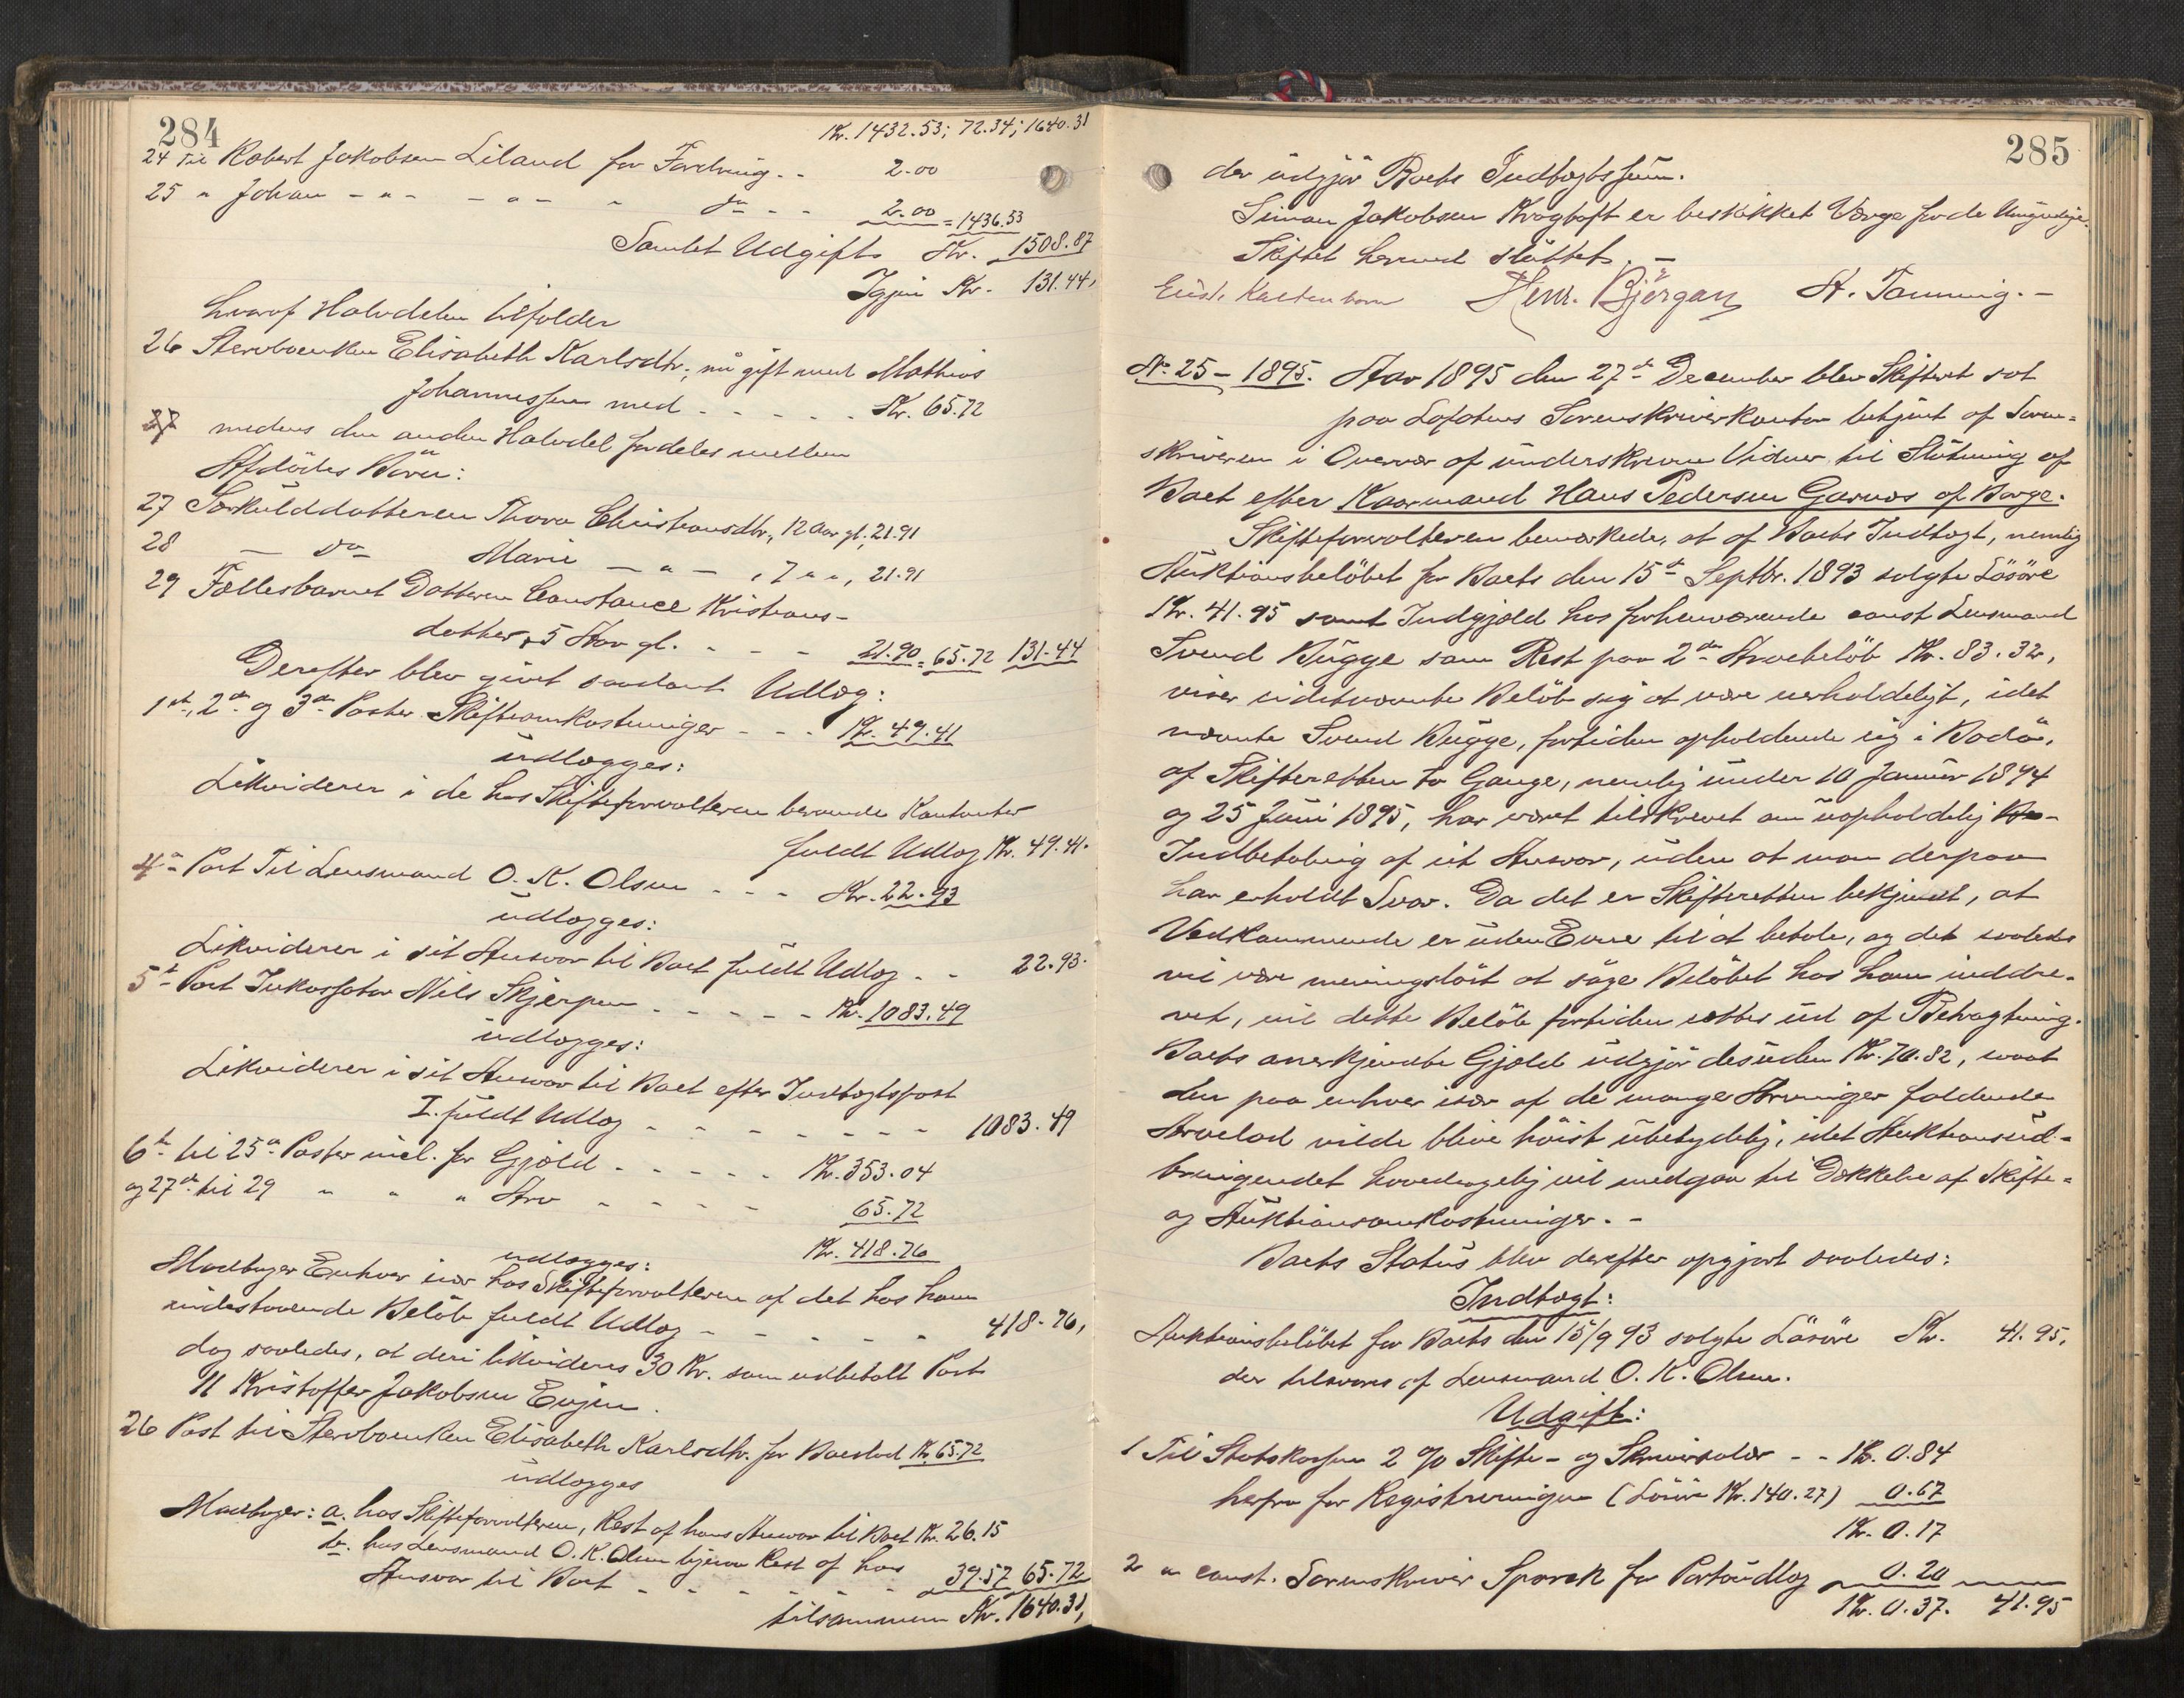 284
Kr. 1432.53; 72.34; 1640.31
24 Til Robert Jakobsen Liland for Fordring - - 2.00
25 " Johan - " - - " - " do - - 2.00 = 1436.53
Samlet Udgift Kr. 1508.87
Igjen Kr. 131.44,
hvoraf Halvdelen tilfalder
26 Stervboenken Elisabeth Karlsdtr., nu gift med Mathias
Johannessen med - - - - - Kr. 65.72
27 medens den anden Halvdel fordeles mellem
Afdödes Börn:
27 Særkulddatteren Thora Christiansdtr., 12 Aar gl., 21.91
28 — do Marie — " — , 7 " " , 21.91
29 Fællesbarnet Datteren Constance Kristians-
datter, 5 Aar gl. - - - 21.90 = 65.72 131.44
Derefter blev givet saadant Udlæg:
1ste, 2den og 3die Poster Skifteomkostninger - - - Kr. 49.41
udlægges:
Likviderer i de hos Skifteforvalteren beroende Kontanter
fuldt Udlæg Kr. 49.41.
4de Post Til Lensmand O. K. Olsen - - - Kr. 22.93
udlægges:
Likviderer i sit Ansvar til Boet fuldt Udlæg - - 22.93.
5te Post Inkassator Nils Skjerpen - - - - - Kr. 1083.49
udlægges:
Likviderer i sit Ansvar til Boet efter Indtægtspost
I. fuldt Udlæg - - - - - - - - 1083.49
6te til 25de Poster incl. for Gjæld - - - - - Kr. 353.04
og 27de til 29 " " " Arv - - - - - 65.72
Kr. 418.76
udlægges:
Modtager Enhver især hos Skifteforvalteren af det hos ham
indestaaende Belöb fuldt Udlæg - - - - - - 418.76,
dog saaledes, at deri likvideres 30 Kr. som udbetalt Post
11 Kristoffer Jakobsen Eujen.
26 Post til Stervboenken Elisabeth Karlsdtr. for Boeslod Kr. 65.72
udlægges
Modtager: a. hos Skifteforvalteren, Rest af hans Ansvar til Boet Kr. 26.15
b. hos Lensmand O. K. Olsen ligesaa Rest af hans
Ansvar til Boet - - - - - - 39.57 65.72
tilsammen Kr. 1640.31,
285
der udgjör Boets Indtægtssum.
Simon Jakobsen Kragtoft er beskikket Værge for de Umyndige.
Skiftet hermed sluttet. —
Henr. Björgan A. Tanning. —
No. 25 – 1895. Aar 1895 den 27de December blev Skifteret sat
paa Lofotens Sorenskriverkontor betjent af Soren=
skriveren i Overvær af underskrevne Vidner til Slutning af
Boet efter Kaarmand Hans Pedersen Garnæs af Borge.
Skifteforvalteren bemærkede, at af Boets Indtægt, nemlig
Auktionsbelöbet for Boets den 15de Septbr. 1893 solgte Lösöre
Kr. 41.95 samt Indgjæld hos forhenværende const. Lensmand
Svend Bugge som Rest paa 2den Arvebelöb Kr. 83.32,
viser sidstnævnte Belöb sig at være uerholdeligt, idet
nævnte Svend Bugge, fortiden opholdende sig i Bodö,
af Skifteretten to Gange, nemlig under 10 Januar 1894
og 25 Juni 1895, har været tilskrevet om uopholdelig
Indbetaling af sit Ansvar, uden at man derpaa
har erholdt Svar. Da det er Skifteretten bekjendt, at
Vedkommende er uden Evne til at betale, og det saaledes
vil være meningslöst at söge Belöbet hos ham inddre-
vet, vil dette Belöb fortiden sættes ud af Betragtning.
Boets anerkjendte Gjæld udgjör desuden Kr. 70.82, saaat
den paa enhver især af de mange Arvinger faldende
Arvelod vilde blive höist ubetydelig, idet Auktionsud-
bringendet hovedsagelig vil medgaa til Dækkelse af Skifte=
og Auktionsomkostninger. -
Boets Status blev derefter opgjort saaledes:
Indtægt:
Auktionsbelöbet for Boets den 15/9 93 solgte Lösöre Kr. 41.95,
der tilsvares af Lensmand O. K. Olsen.
Udgift:
1 Til Statskassen 2 % Skifte- og Skriversalær - - Kr. 0.84
herfra for Registreringen (Lösöre Kr. 140.27) 0.67
Kr. 0.17
2 " const. Sorenskriver Sparck for Portoudlæg 0.20
Kr. 0.37. 41.95